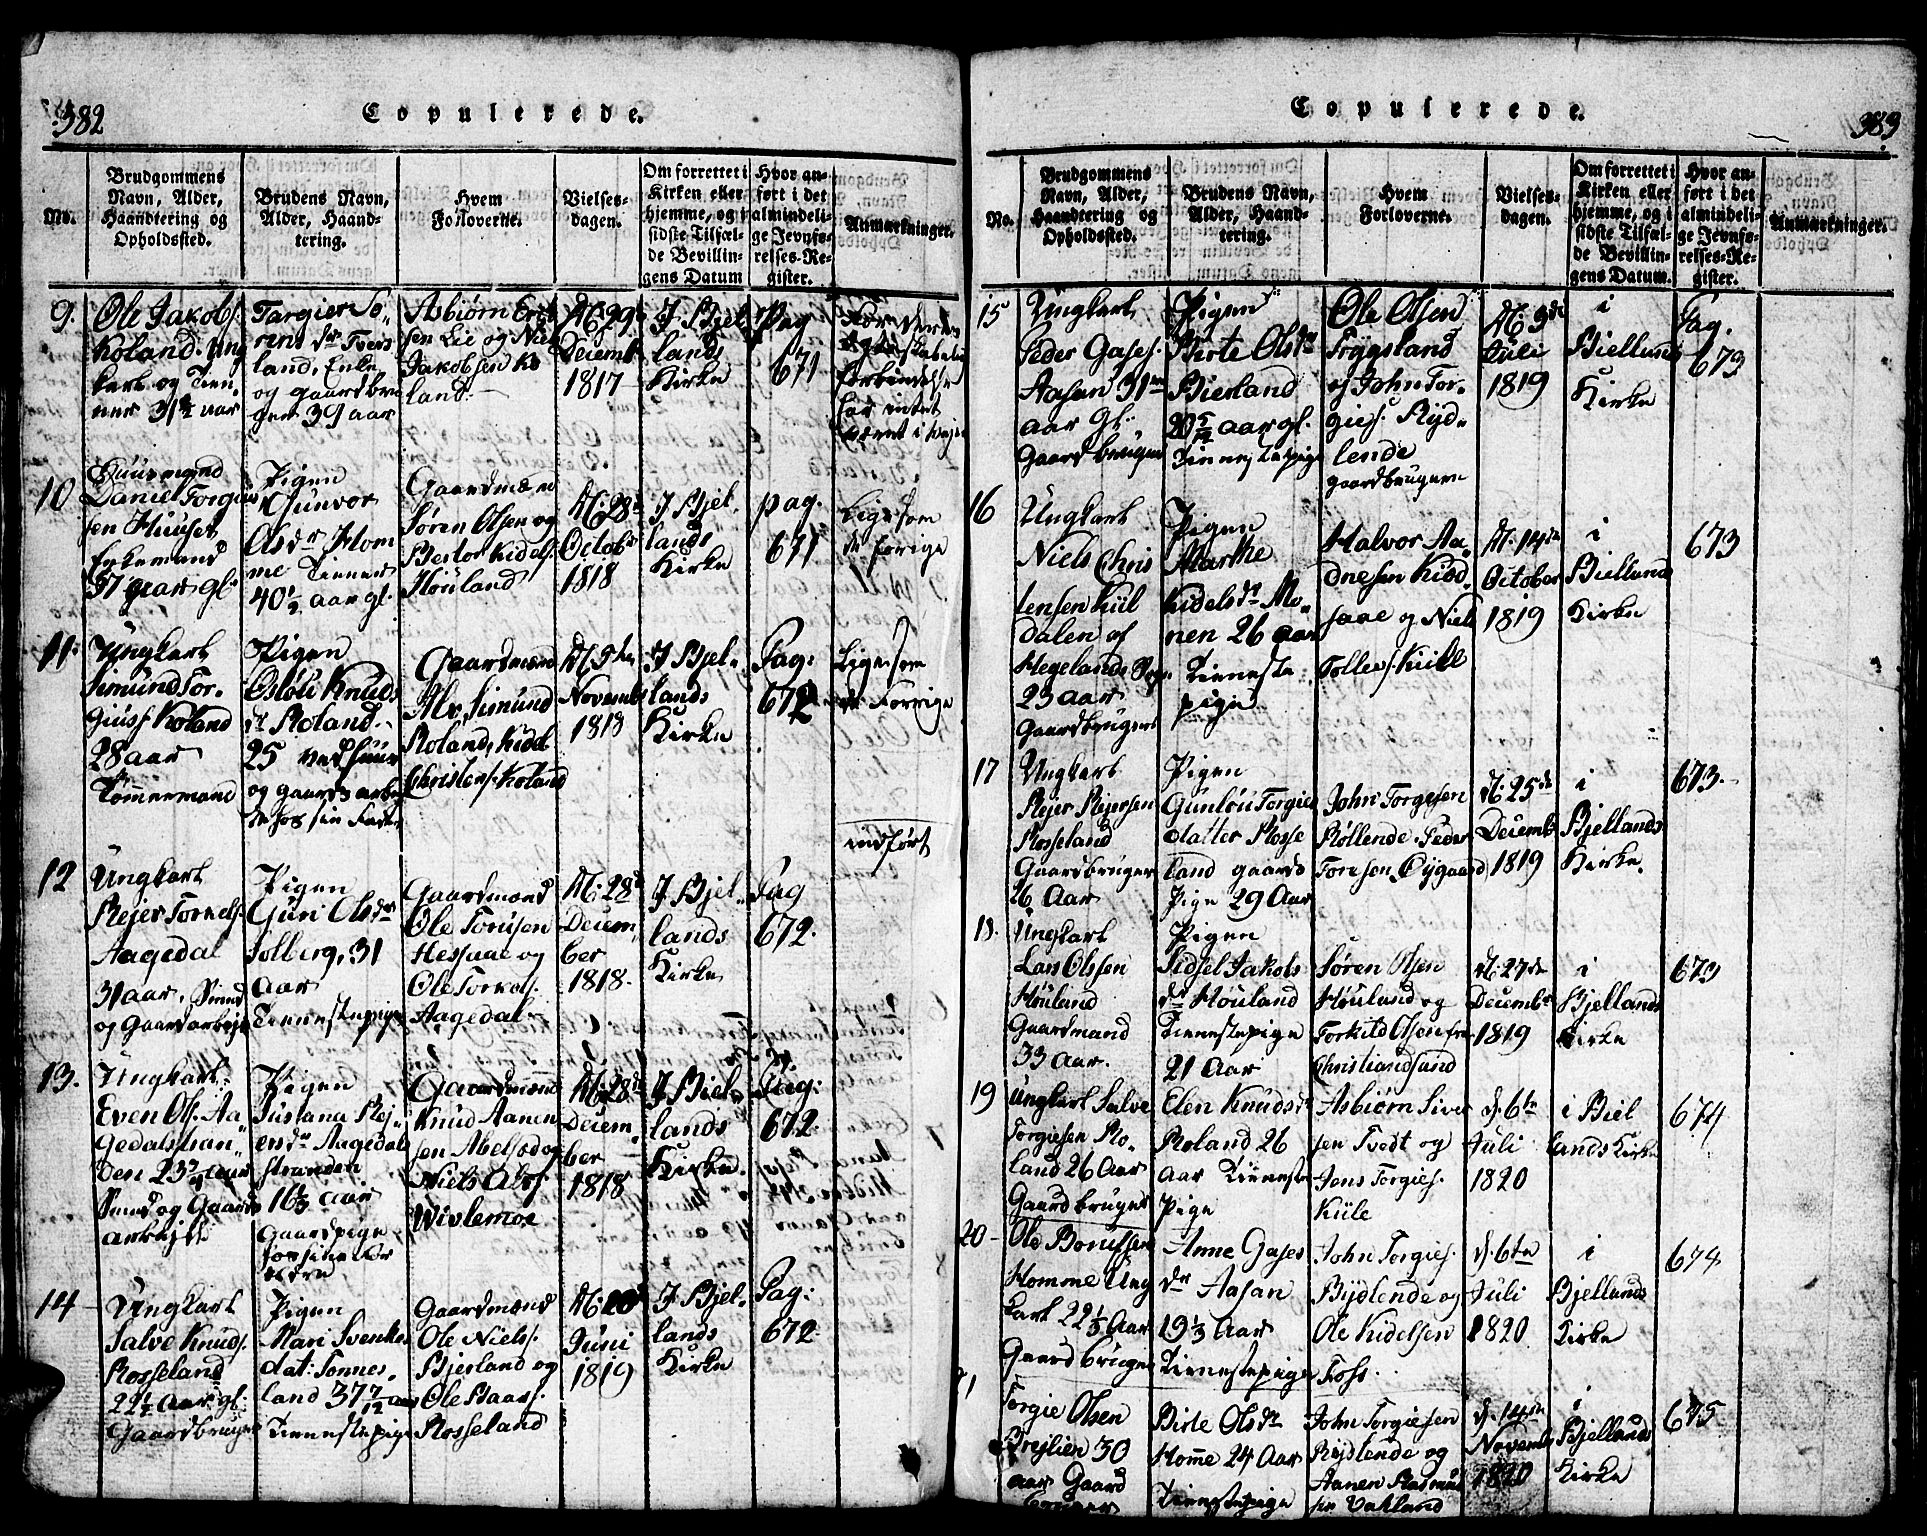 382
Copulerede.
No.
Brudgommens
Navn, Alder,
Haandtering og
Opholdssted.
Brudens Navn,
Alder, Haand-
tering.
Hvem
Forloverne.
Vielses-
dagen.
Om forrettet i
Kirken eller
hjemme, og i
sidste Tilfæl-
de Bevillin-
gens Datum
Hvor an-
ført i det
almindeli-
ge Jevnfø-
relses-Re-
gister.
Anmærkninger.
9.
Ole Jakobs.
Koland. Ung
karl og Tien
ner 31 aar
Targier So-
rens dr Tveds
land, Enke
og gaardbru
ger 39 aar
Asbiørn Erik
sen Lie og Niels
Jakobsen Ko
land.
d. 29
Decemb
1817
I Bjel
lands
Kirke
Pag
671
forbindelse
har intet
været i veje
10
Huusmand
Daniel Torgius
sen Huuset
Enkemand
57 aar gl.
Pigen
Gunvor
Olsdr Hom
me Tienner
40½ aar gl.
Gaardmænd
Søren Olsen og
Bestor Kidels.
Høuland
d. 28
Octobr
1818
I Bjel.
lands
Kirke
pag.
671
Ligesom
de forige
11.
Ungkarl
Simund Tor-
giuss. Koland
28 aar
Tømmermand
Pigen
Osløu Knuds
dr Roland.
25
og gaards arbej
de hos sin Fader
Gaardmænd
Alv Simund
Roland, Kidel
Christens. Koland
d. 5te
Novemb
1818
I Bjel-
lands
Kirke
Pag:
672
Ligesom
de Forrige
indført
12
Ungkarl
Rejer Torkels.
Aagedal
31 aar. Smed
og Gaardarbejde
Pigen
Guri Olsdr
Solberg, 31
aar
Tiennestepige
Gaardmænd
Ole Torusen
Hessaae og
Ole Torkels.
Aagedal
d. 28
Decem,
ber
1818.
I Bjel-
lands
Kirke
Pag
672.
13.
Ungkarl.
Even Ols. Aa
gedalstran-
den 23 aar
Smed og Gaards
arbejde
Pigen
Justana Rej-
ersdr Aagedal
stranden
16⅓ aar
Gaardpige
for sine For
ældre
Gaardmænd
Knud Aanen
sen Abelsød og
Niels Alvs.
Wivlemoe
d. 28
Decem-
ber
1818
I Bjel-
lands
Kirke.
Pag:
672.
14
Ungkarl
Salve Knuds.
Rosseland
22½ Aar gl.
Gaardbruger
Pigen
Mari Svenke
dat: Tonnes
land 37 7/12 aar
Tiennestepige
Gaardmænd
Ole Niels.
Bjerland og
Ole Baars.
Rosseland
Juni
1819
I Bjel.
lands
Kirke
Pag:
672.
383
Copulerede.
No.
Brudgommens
Navn, Alder,
Haandtering og
Opholdssted.
Brudens Navn,
Alder, Haand-
tering.
Hvem
Forloverne.
Vielses-
dagen.
Om forrettet i
Kirken eller
hjemme, og i
sidste Tilfæl-
de Bevillin-
gens Datum.
Hvor an-
ført i det
almindeli-
ge Jevnfø-
relses-Re-
gister.
Anmærkninger.
15
Ungkarl
Peder Gases.
Aasan 31
aar gl.
Gaardbruger
Pigen
Berte Olsdr
Bierland
20 5/12 aar gl.
Tiennestepige
Ole Olsen
Tryggsland
og John Tor-
gies. Ryd-
lende
gaardbrugere
d. 3de
Juli
1819
i
Bjellands
Kirke
Pag.
673
16
Ungkarl
Niels Chris
tensen Kul
dalen af
Hegelands Sogn
23 aar
Gaardbruger
Pigen
Marthe
Kidelsdr Mo-
nen 26 aar
Tienneste
pige
Halvor Aa-
dnesen Kiod
saae og Niels
Tollevs. Kuile
d. 14de
October
1819
i
Bjellands
Kirke
673
17
Ungkarl
Rejer Rejersen
Rosseland
Gaardbruger
26 Aar
Pigen
Gunløu Torgies
datter Rosse
land gaards
Pige 29 Aar
John Torgesen
Røllende. Peder
Toresen Øygaard
d. 25de
Decemb
1819
i
Bjellands
Kirke.
673.
18.
Ungkarl
Lars Olssen
Høuland
Gaardmand
33 aar.
Pigen
Sidsel Jakobs
dr Høuland
Tiennestepige
21 Aar
Søren Olsen
Høuland og
Torkild Olsen fra
Christiandsand
d. 27de
Decembr
1819
i
Bjellands
Kirke
673
19
Ungkarl Salve
Torgiesen Ro-
land 26 Aar
Gaardbruger
Elen Knudsdr
Roland 26
Aar Tienneste
Pige
Asbiørn Siver
sen Tvedt og
Jens Torgies.
Kule
d. 6te
Juli
1820
i Biel
lands Kirke
674
20
Ole Boruffsen
Homme Ung
karl 22⅓ Aar
Gaardbruger
Anne Gases
dr Aasan
19⅓ Aar
Tiennestepige
John Torgies.
Rydlende og
Ole Kidelsen
Foss.
d. 6te
Juli
1820
i
Bjellands
Kirke
674
21
Torgie Olsen
Brejlien 30
aar Gaard
bruger
Birte Olsdr
Homme 24 Aar
Tiennestepige
John Torgiesen
Rydlende og
Aanen Rasmus
sen Vakland
d. 14de
Novemb
1820
i
Bjellands
Kirke
675